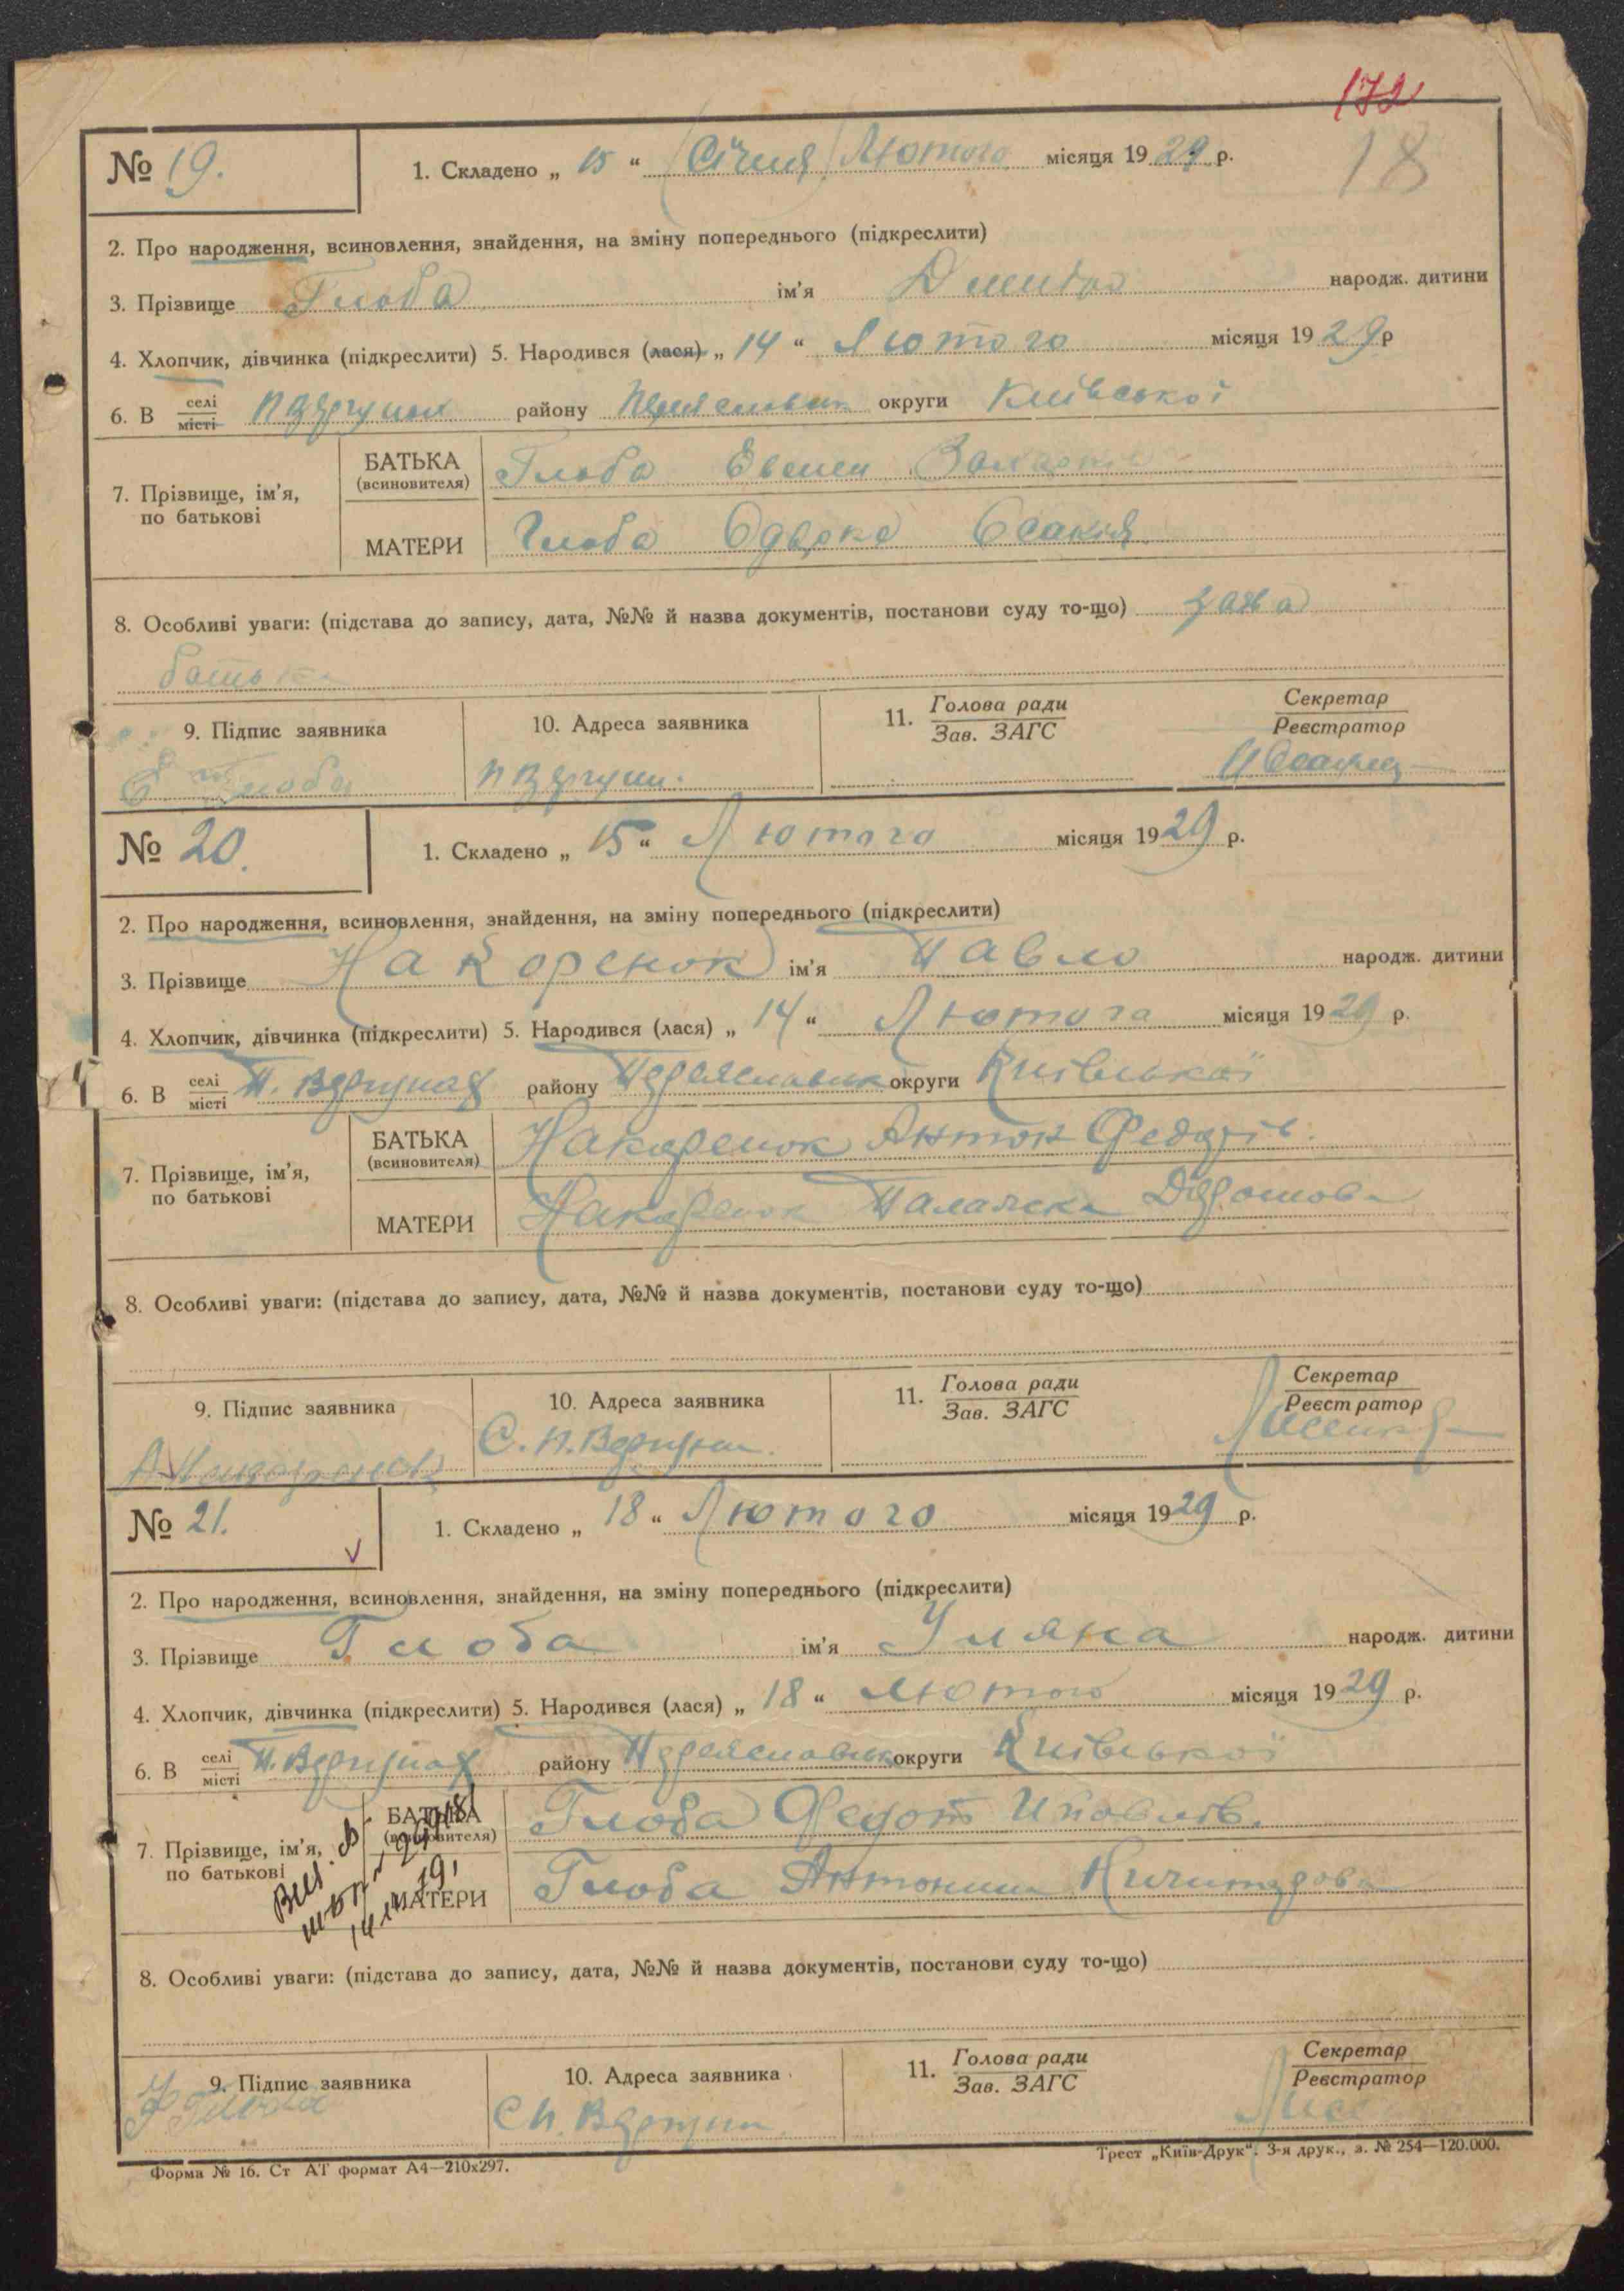 172
18
№ 19. 1. Складено „ 15 “ (Січня) Лютого місяця 1929 р.
2. Про народження, всиновлення, знайдення, на зміну попереднього (підкреслити)
3. Прізвище Глоба ім'я Дмитро народж. дитини
4. Хлопчик, дівчинка (підкреслити) 5. Народився (лася) „ 14 “ Лютого місяця 1929 р
6. В селі місті району округи Київської
7. Прізвище, ім'я, по батькові
БАТЬКА (всиновителя) Глоба Евген
МАТЕРИ Глоба Одарка
8. Особливі уваги: (підстава до запису, дата, №№ й назва документів, постанови суду то-що) заява
батька
9. Підпис заявника 10. Адреса заявника 11. Голова ради Зав. ЗАГС Секретар Реєстратор
Глоба
№ 20. 1. Складено „ 15 “ Лютого місяця 1929 р.
2. Про народження, всиновлення, знайдення, на зміну попереднього (підкреслити)
3. Прізвище Накоренок ім'я Павло народж. дитини
4. Хлопчик, дівчинка (підкреслити) 5. Народився (лася) „ 14 “ Лютого місяця 1929 р.
6. В селі місті району Переяславськ округи Київської
7. Прізвище, ім'я, по батькові
БАТЬКА (всиновителя) Накоренок Антон Федорів.
МАТЕРИ Накоренок Палажка
8. Особливі уваги: (підстава до запису, дата, №№ й назва документів, постанови суду то-що)
9. Підпис заявника 10. Адреса заявника 11. Голова ради Зав. ЗАГС Секретар Реєстратор
№ 21. 1. Складено „ 18 “ Лютого місяця 1929 р.
2. Про народження, всиновлення, знайдення, на зміну попереднього (підкреслити)
3. Прізвище Глоба ім'я Уляна народж. дитини
4. Хлопчик, дівчинка (підкреслити) 5. Народився (лася) „ 18 “ Лютого місяця 1929 р.
6. В селі місті району Переяславськ округи Київської
7. Прізвище, ім'я, по батькові
БАТЬКА (всиновителя) Глоба Федот
МАТЕРИ Глоба Антонина
8. Особливі уваги: (підстава до запису, дата, №№ й назва документів, постанови суду то-що)
9. Підпис заявника 10. Адреса заявника 11. Голова ради Зав. ЗАГС Секретар Реєстратор
Глоба
Форма № 16. Ст АТ формат А4—210х297. Трест „Київ-Друк“. 3-я друк., з. № 254—120.000.